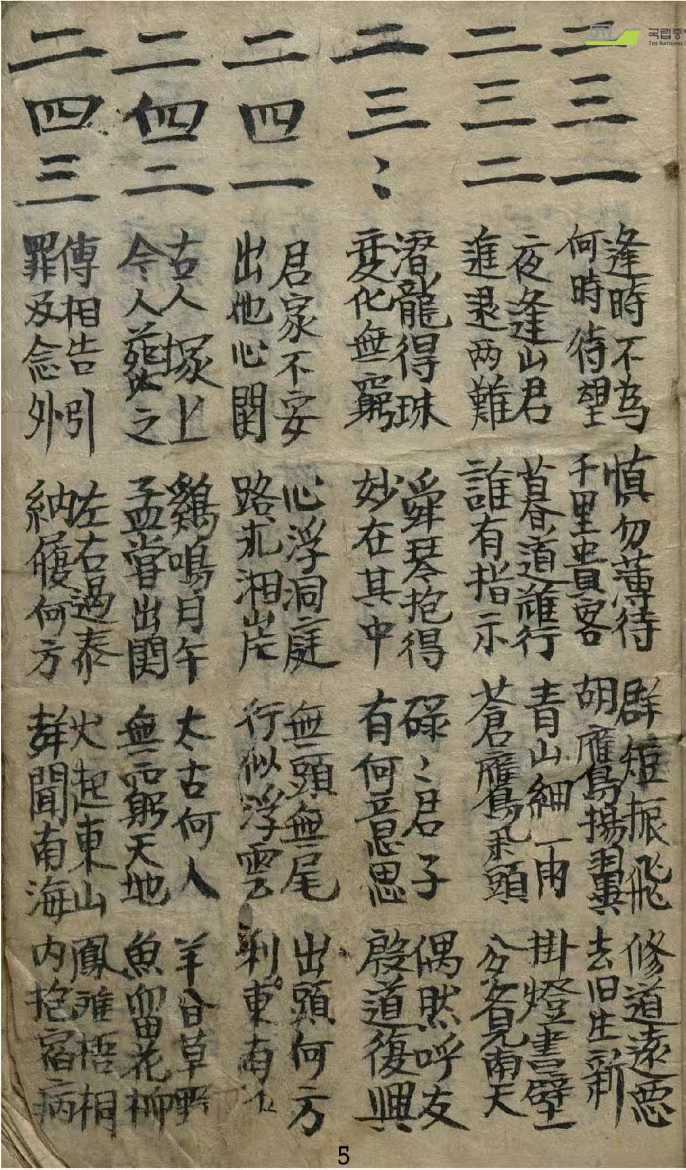 국립중
二三一
逢時不為
何時待望
慎勿薄待
千里貴客
群短振飛
胡鴈揚翼
修道遠悪
去旧生新
二三二
夜逢山君
進退两難
暮道難行
誰有指示
青山細雨
蒼鴈頭
掛燈書壁
見南天
二三〻
潛龍得珠
變化無窮
舜琴抱得
妙在其中
碌〻君子
有何意思
偶然呼友
殷道復興
二四一
君家不安
出他心閑
心浮洞庭
路湘岸
無頭無尾
行似浮雲
出頭何方
利東南
二四二
古人塚上
今人葬之
鷄鳴日午
孟嘗出関
太古何人
無窮天地
羊食草野
魚留花柳
二四三
傳相告引
罪及念外
左右過泰
納履何方
火起東山
聞南海
鳳梧桐
内抱宿病
5